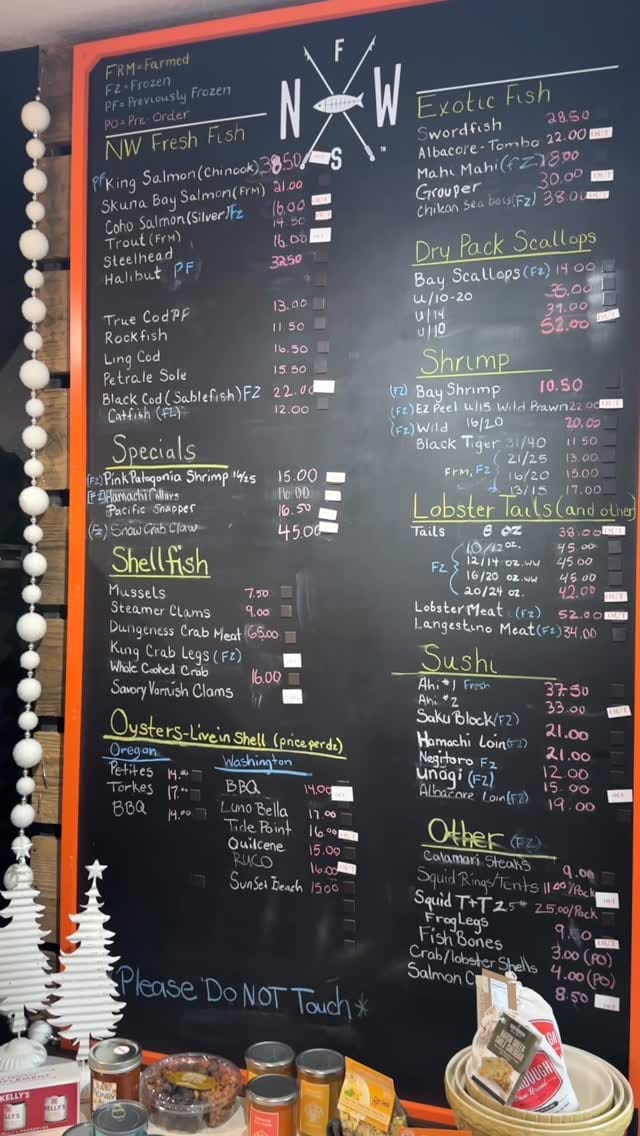 FRM=Farmed
FZ=Frozen
PF=Previously Frozen
PO=Pre-Order
F
N W
S
NW Fresh Fish
PF King Salmon (Chinook) 38.50
Skuna Bay Salmon (FRM) 21.00
Coho Salmon (Silver) FZ 16.00
Trout (FRM) 14.50
Steelhead 16.00
Halibut PF 32.50
True Cod PF 13.00
Rockfish 11.50
Ling Cod 16.50
Petrale Sole 15.50
Black Cod (Sablefish) FZ 22.00
Catfish (FZ) 12.00
Specials
(FZ) Pink Patagonia Shrimp 16/25 15.00
(FZ) Hamachi Collars 16.00
Pacific Snapper 16.50
(FZ) Snow Crab Claw 45.00
Shellfish
Mussels 7.50
Steamer Clams 9.00
Dungeness Crab Meat 65.00
King Crab Legs (FZ)
Whole Cooked Crab 16.00
Savory Varnish Clams
Oysters-Live in Shell (price per dz)
Oregon
Petites 14.00
Torkes 17.00
BBQ 14.00
Washington
BBQ 14.00
Luna Bella 17.00
Tide Point 16.00
Quilcene 15.00
16.00
Sunset Beach 15.00
Please Do NOT Touch*
Exotic Fish
Swordfish 28.50
Albacore-Tombo 22.00 OUT
Mahi Mahi (FZ) 18.00
Grouper 30.00
Chilean Seabass (FZ) 38.00 OUT
Dry Pack Scallops
Bay Scallops (FZ) 14.00
U/10-20 35.00
U/14 39.00
U/10 52.00 OUT
Shrimp
(FZ) Bay Shrimp 10.50
(FZ) EZ Peel U/15 Wild Prawn 22.00 OUT
(FZ) Wild 16/20 20.00
Black Tiger 31/40 11.50
FRM, FZ 21/25 13.00
16/20 15.00
13/15 17.00
Lobster Tails (and other)
Tails 8 oz 38.00 OUT
FZ 10/12 oz. 45.00
12/14 oz. WW 45.00
16/20 oz. WW 45.00
20/24 oz. 42.00 OUT
Lobster Meat (FZ) 52.00 OUT
Langestino Meat (FZ) 34.00
Sushi
Ahi #1 Fresh 37.50
Ahi #2 33.00 OUT
Saku Block (FZ) 21.00
Hamachi Loin (FZ) 21.00
Negitoro FZ 12.00
Unagi (FZ) 15.00
Albacore Loin (FZ) 19.00 OUT
Other (FZ)
Calamari Steaks 9.00
Squid Rings/Tents 11.00/Pack
Squid T+T 2.5# 25.00/Pack
Frog Legs 9.50
Fish Bones 3.00 (PO)
Crab/lobster Shells 4.00 (PO)
Salmon 8.50
KELLY'S